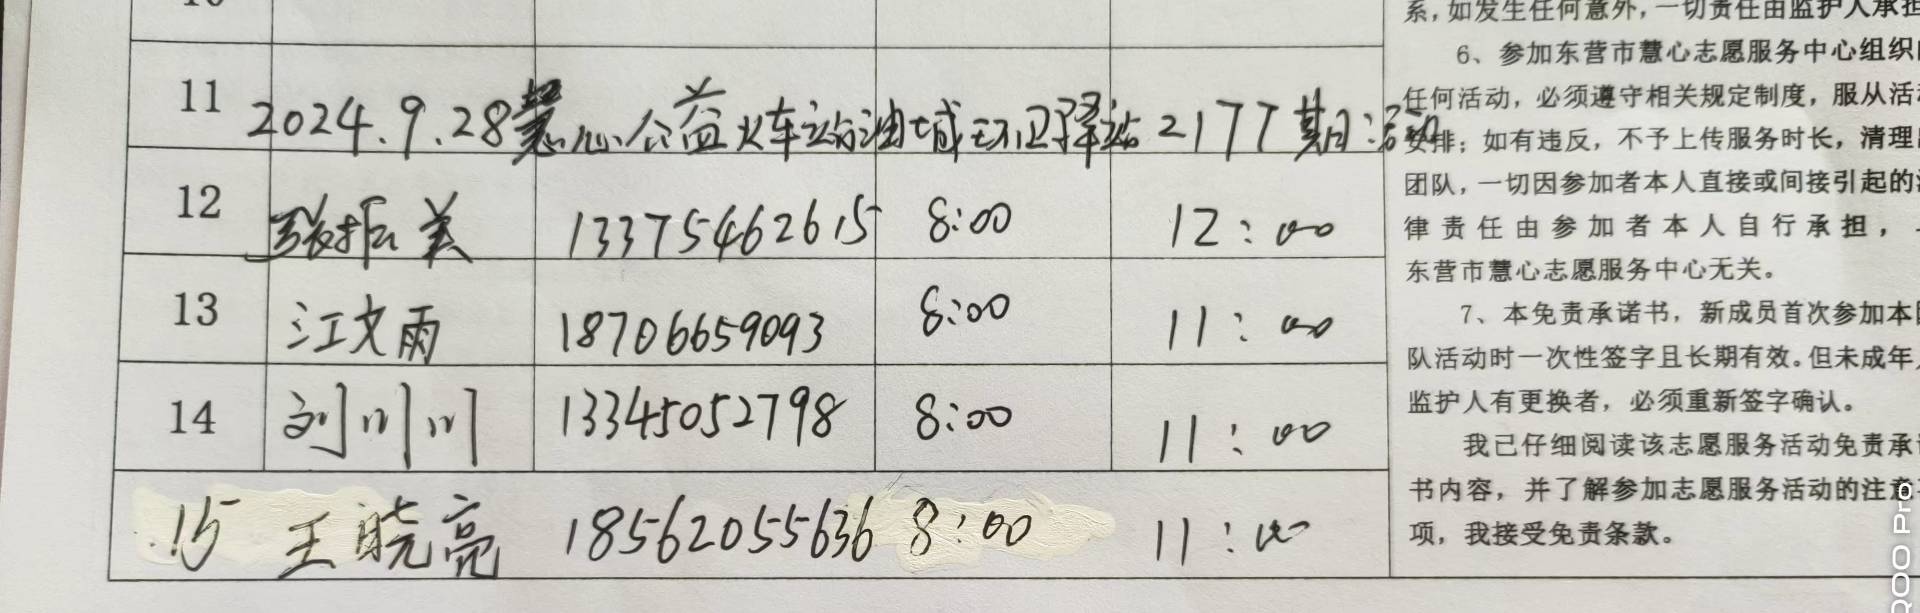 11 2024.9.28慧心公益火车站油城环卫驿站2177期活动
12 张振美 13375462615 8:00 12:00
13 江文雨 18706659093 8:00 11:00
14 刘川川 13345052798 8:00 11:00
15 王晓亮 18562055636 8:00 11:00
系，如发生任何意外，一切责任由监护人承担
6、参加东营市慧心志愿服务中心组织
任何活动，必须遵守相关规定制度，服从活
安排；如有违反，不予上传服务时长，清理
团队，一切因参加者本人直接或间接引起的
律责任由参加者本人自行承担，
东营市慧心志愿服务中心无关。
7、本免责承诺书，新成员首次参加本
队活动时一次性签字且长期有效。但未成年
监护人有更换者，必须重新签字确认。
我已仔细阅读该志愿服务活动免责承
书内容，并了解参加志愿服务活动的注意
项，我接受免责条款。
QOO Pro